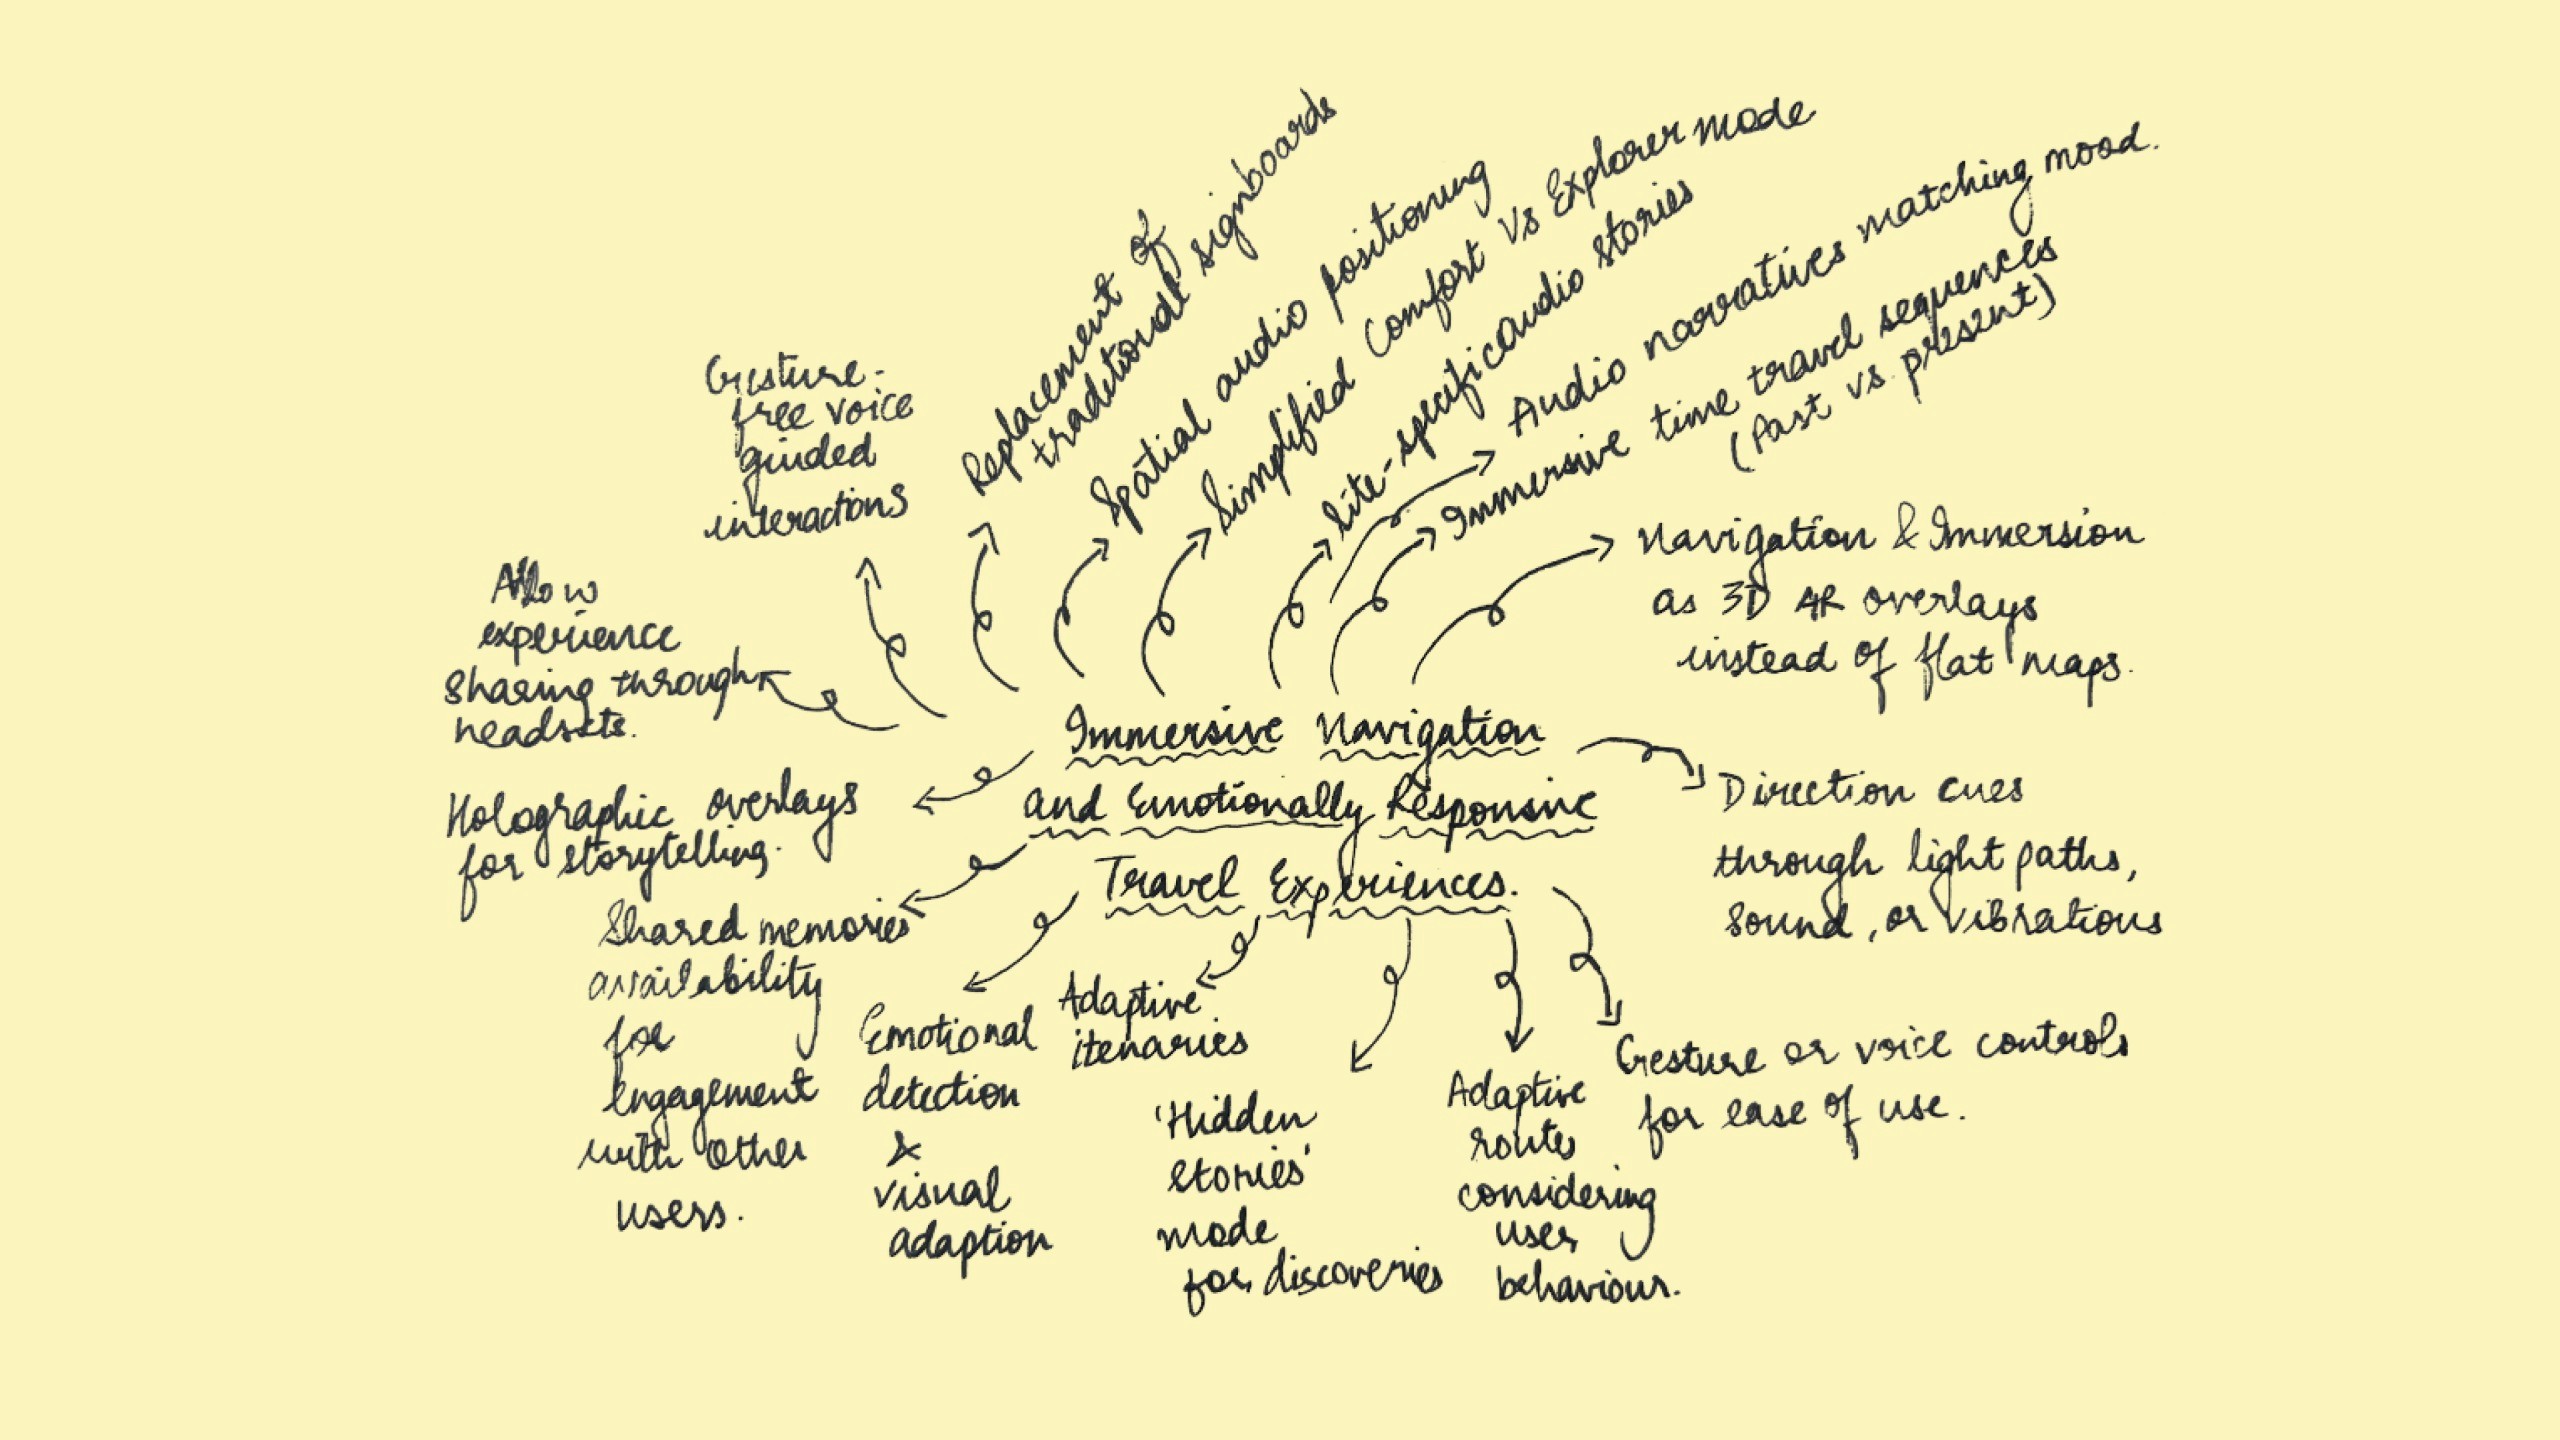 Immersive Navigation
and Emotionally Responsive
Travel Experiences.
Allow
experience
sharing through
headsets.
Gesture-
free voice
guided
interactions
Replacement of
traditional signboards
Spatial audio positioning
Simplified Comfort vs Explorer mode
Site-specific audio stories
Audio narratives matching mood.
Immersive time travel sequences
(Past vs present)
Navigation & Immersion
as 3D AR overlays
instead of flat maps.
Direction cues
through light paths,
sound, or vibrations
Gesture or voice controls
for ease of use.
Adaptive
routes
considering
user
behaviour.
'Hidden
stories'
mode
for discoveries
Adaptive
itenaries
Emotional
detection
&
visual
adaption
Shared memories
availability
for
engagement
with other
users.
Holographic overlays
for storytelling.